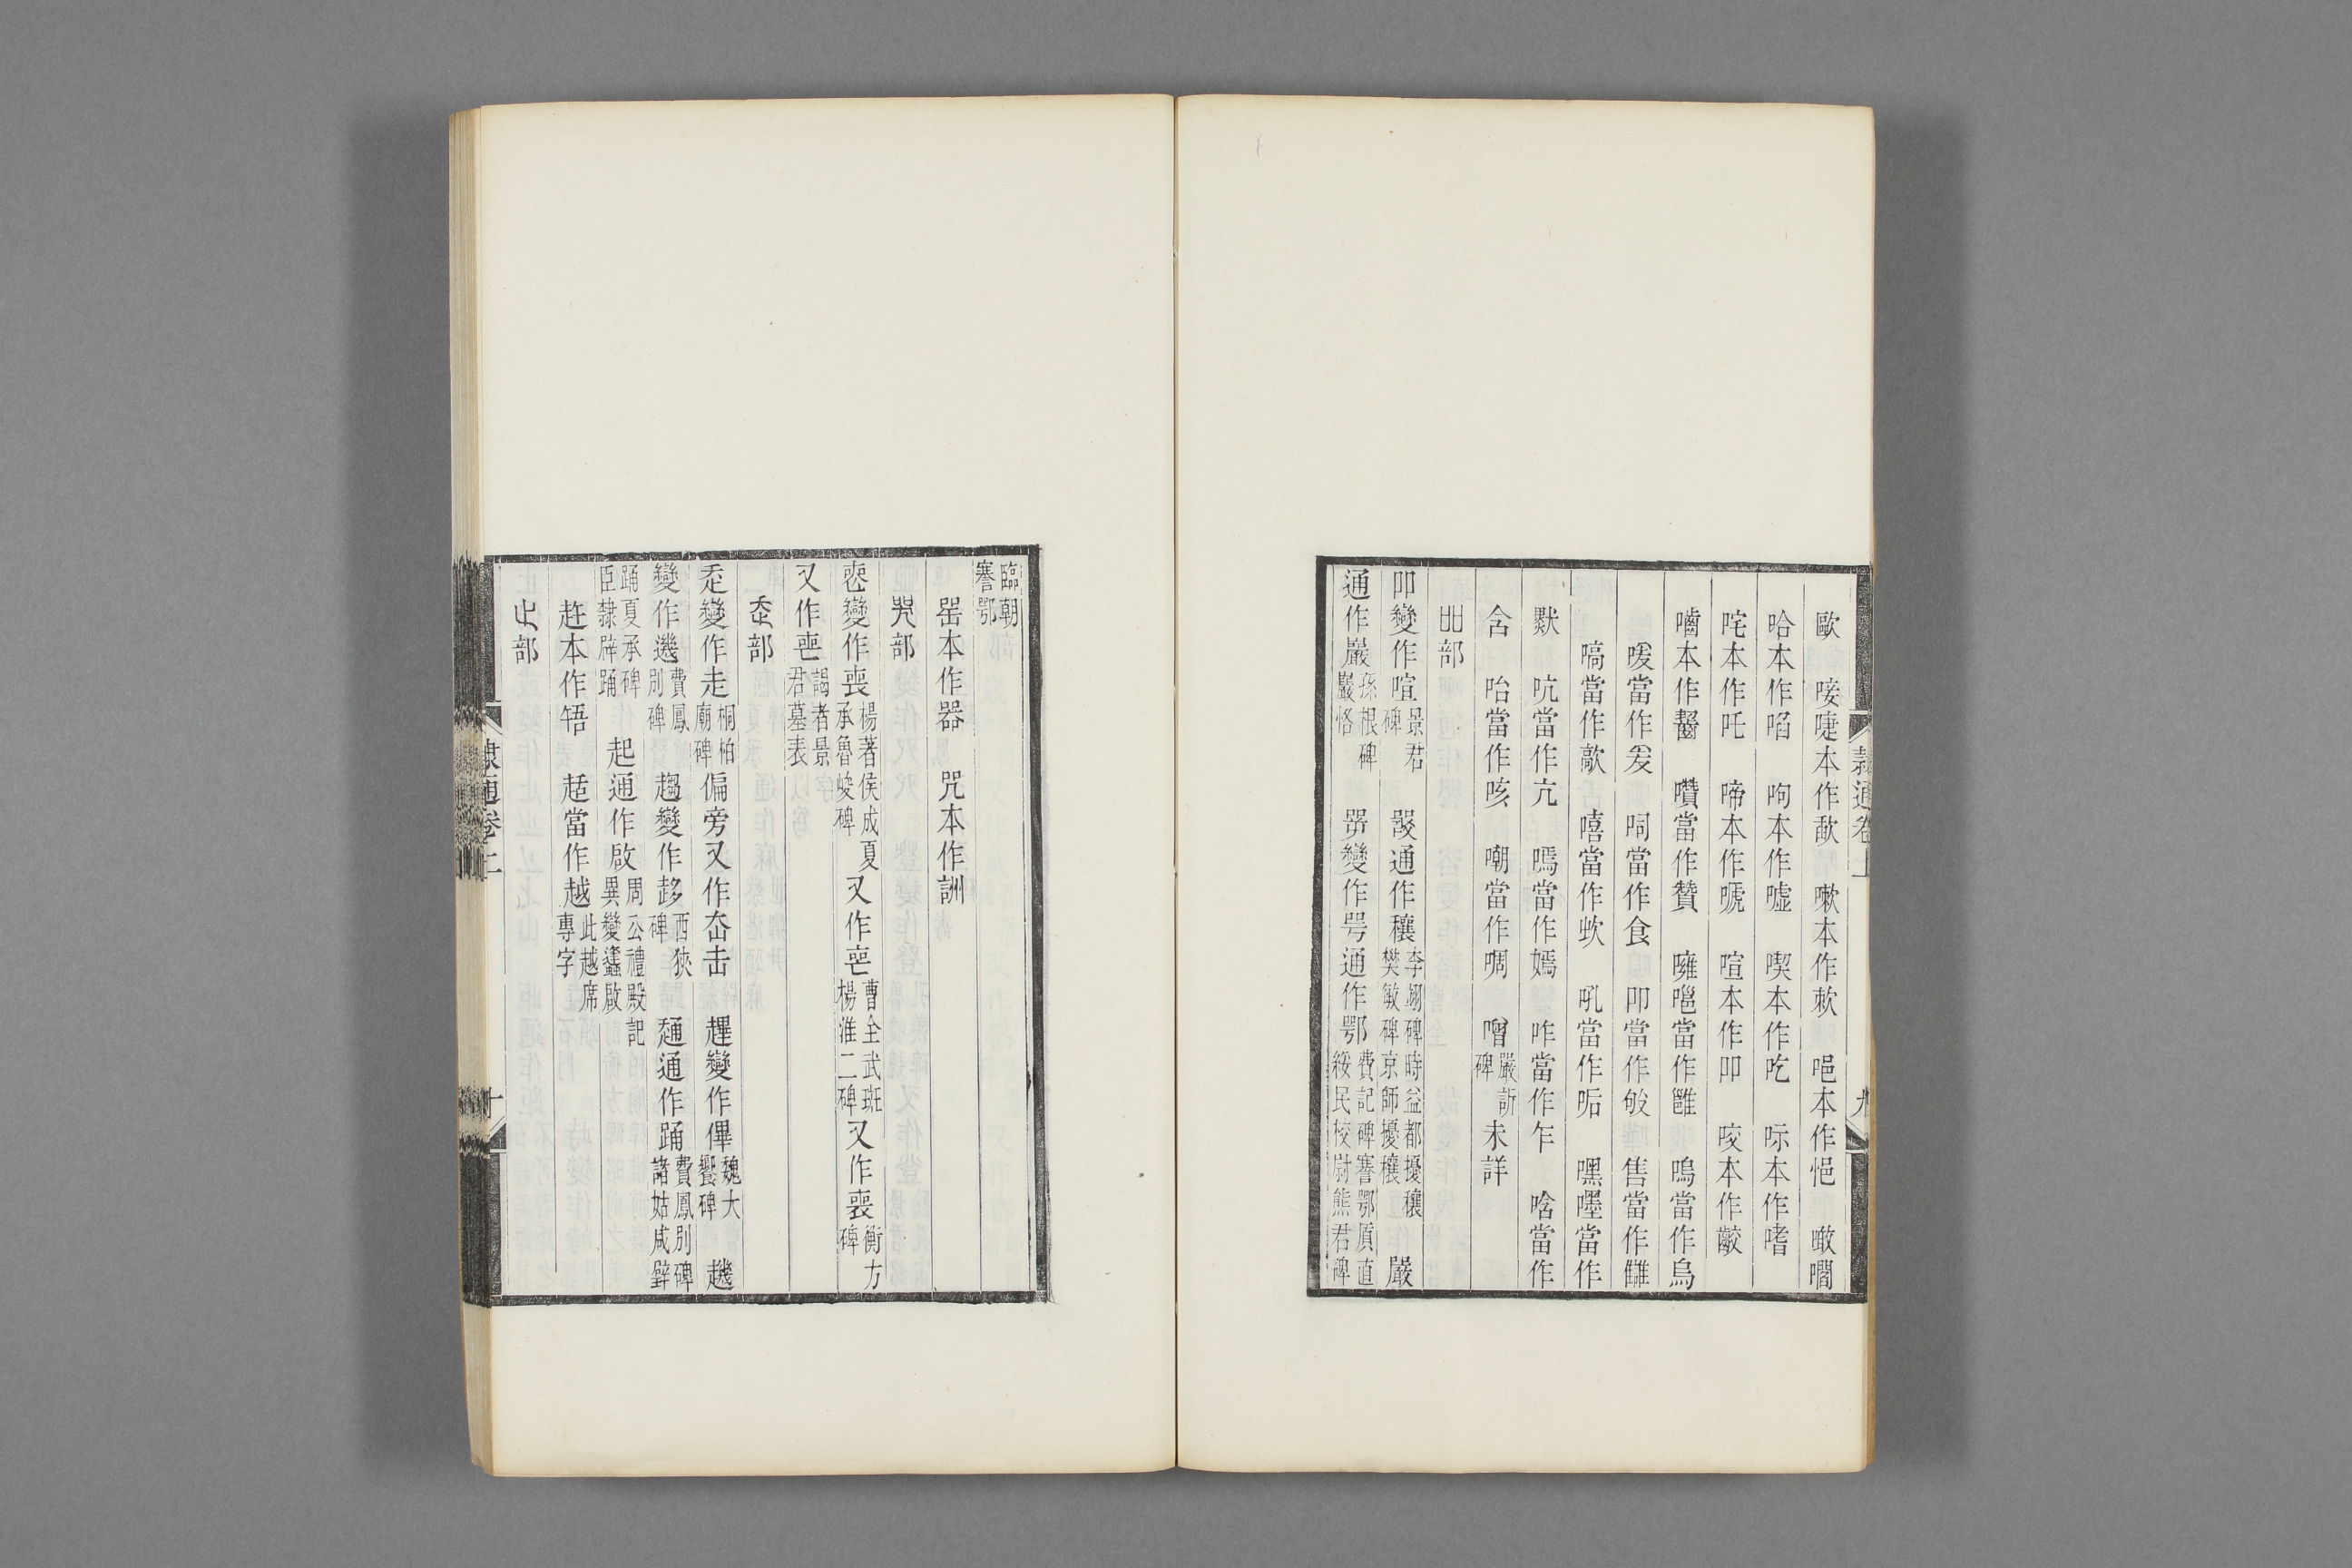 歐　唼啑本作歃　嗽本作㰽　唈本作悒　噉㘚
哈本作啗　呴本作嘘　喫本作吃　㖷本作嗜
咤本作吒　啼本作嗁　喧本作吅　咬本作齩
嚙本作齧　囋當作贊　噰嗈當作雝　嗚當作烏
喛當作爰　呞當作食　叩當作敂　售當作讎
嗃當作歊　嘻當作㰦　吼當作㖃　嘿嚜當作
默　吭當作亢　嘕當作嫣　咋當作乍　唅當作
含　咍當作咳　嘲當作啁　噌嚴訢碑未詳
吅部
吅變作喧景君碑　㗊通作穰李翊碑時益都擾穰樊敏碑京師擾穰　嚴
通作巖孫根碑巖恪　㖾變作咢通作鄂費記碑謇鄂質直綏民校尉熊君碑
臨朝謇鄂
㗊本作器　咒本作詶
哭部
喪變作喪楊著侯成夏承魯峻碑又作䘮曹全武斑楊淮二碑又作喪衡方碑
又作䘮謁者景君墓表
走部
走變作走桐柏廟碑偏旁又作𡴆𡴂　趩變作㒓魏大饗碑　趬
變作邀費鳳別碑　趨變作趍西狹碑　趙通作踊費鳳別碑諸姑咸擗
踊夏承碑臣隸辟踊　起通作啟周公禮殿記異變蠭啟
趌本作牾　趏當作越此越席專字
止部
隸通卷上　九
隸通卷上　十